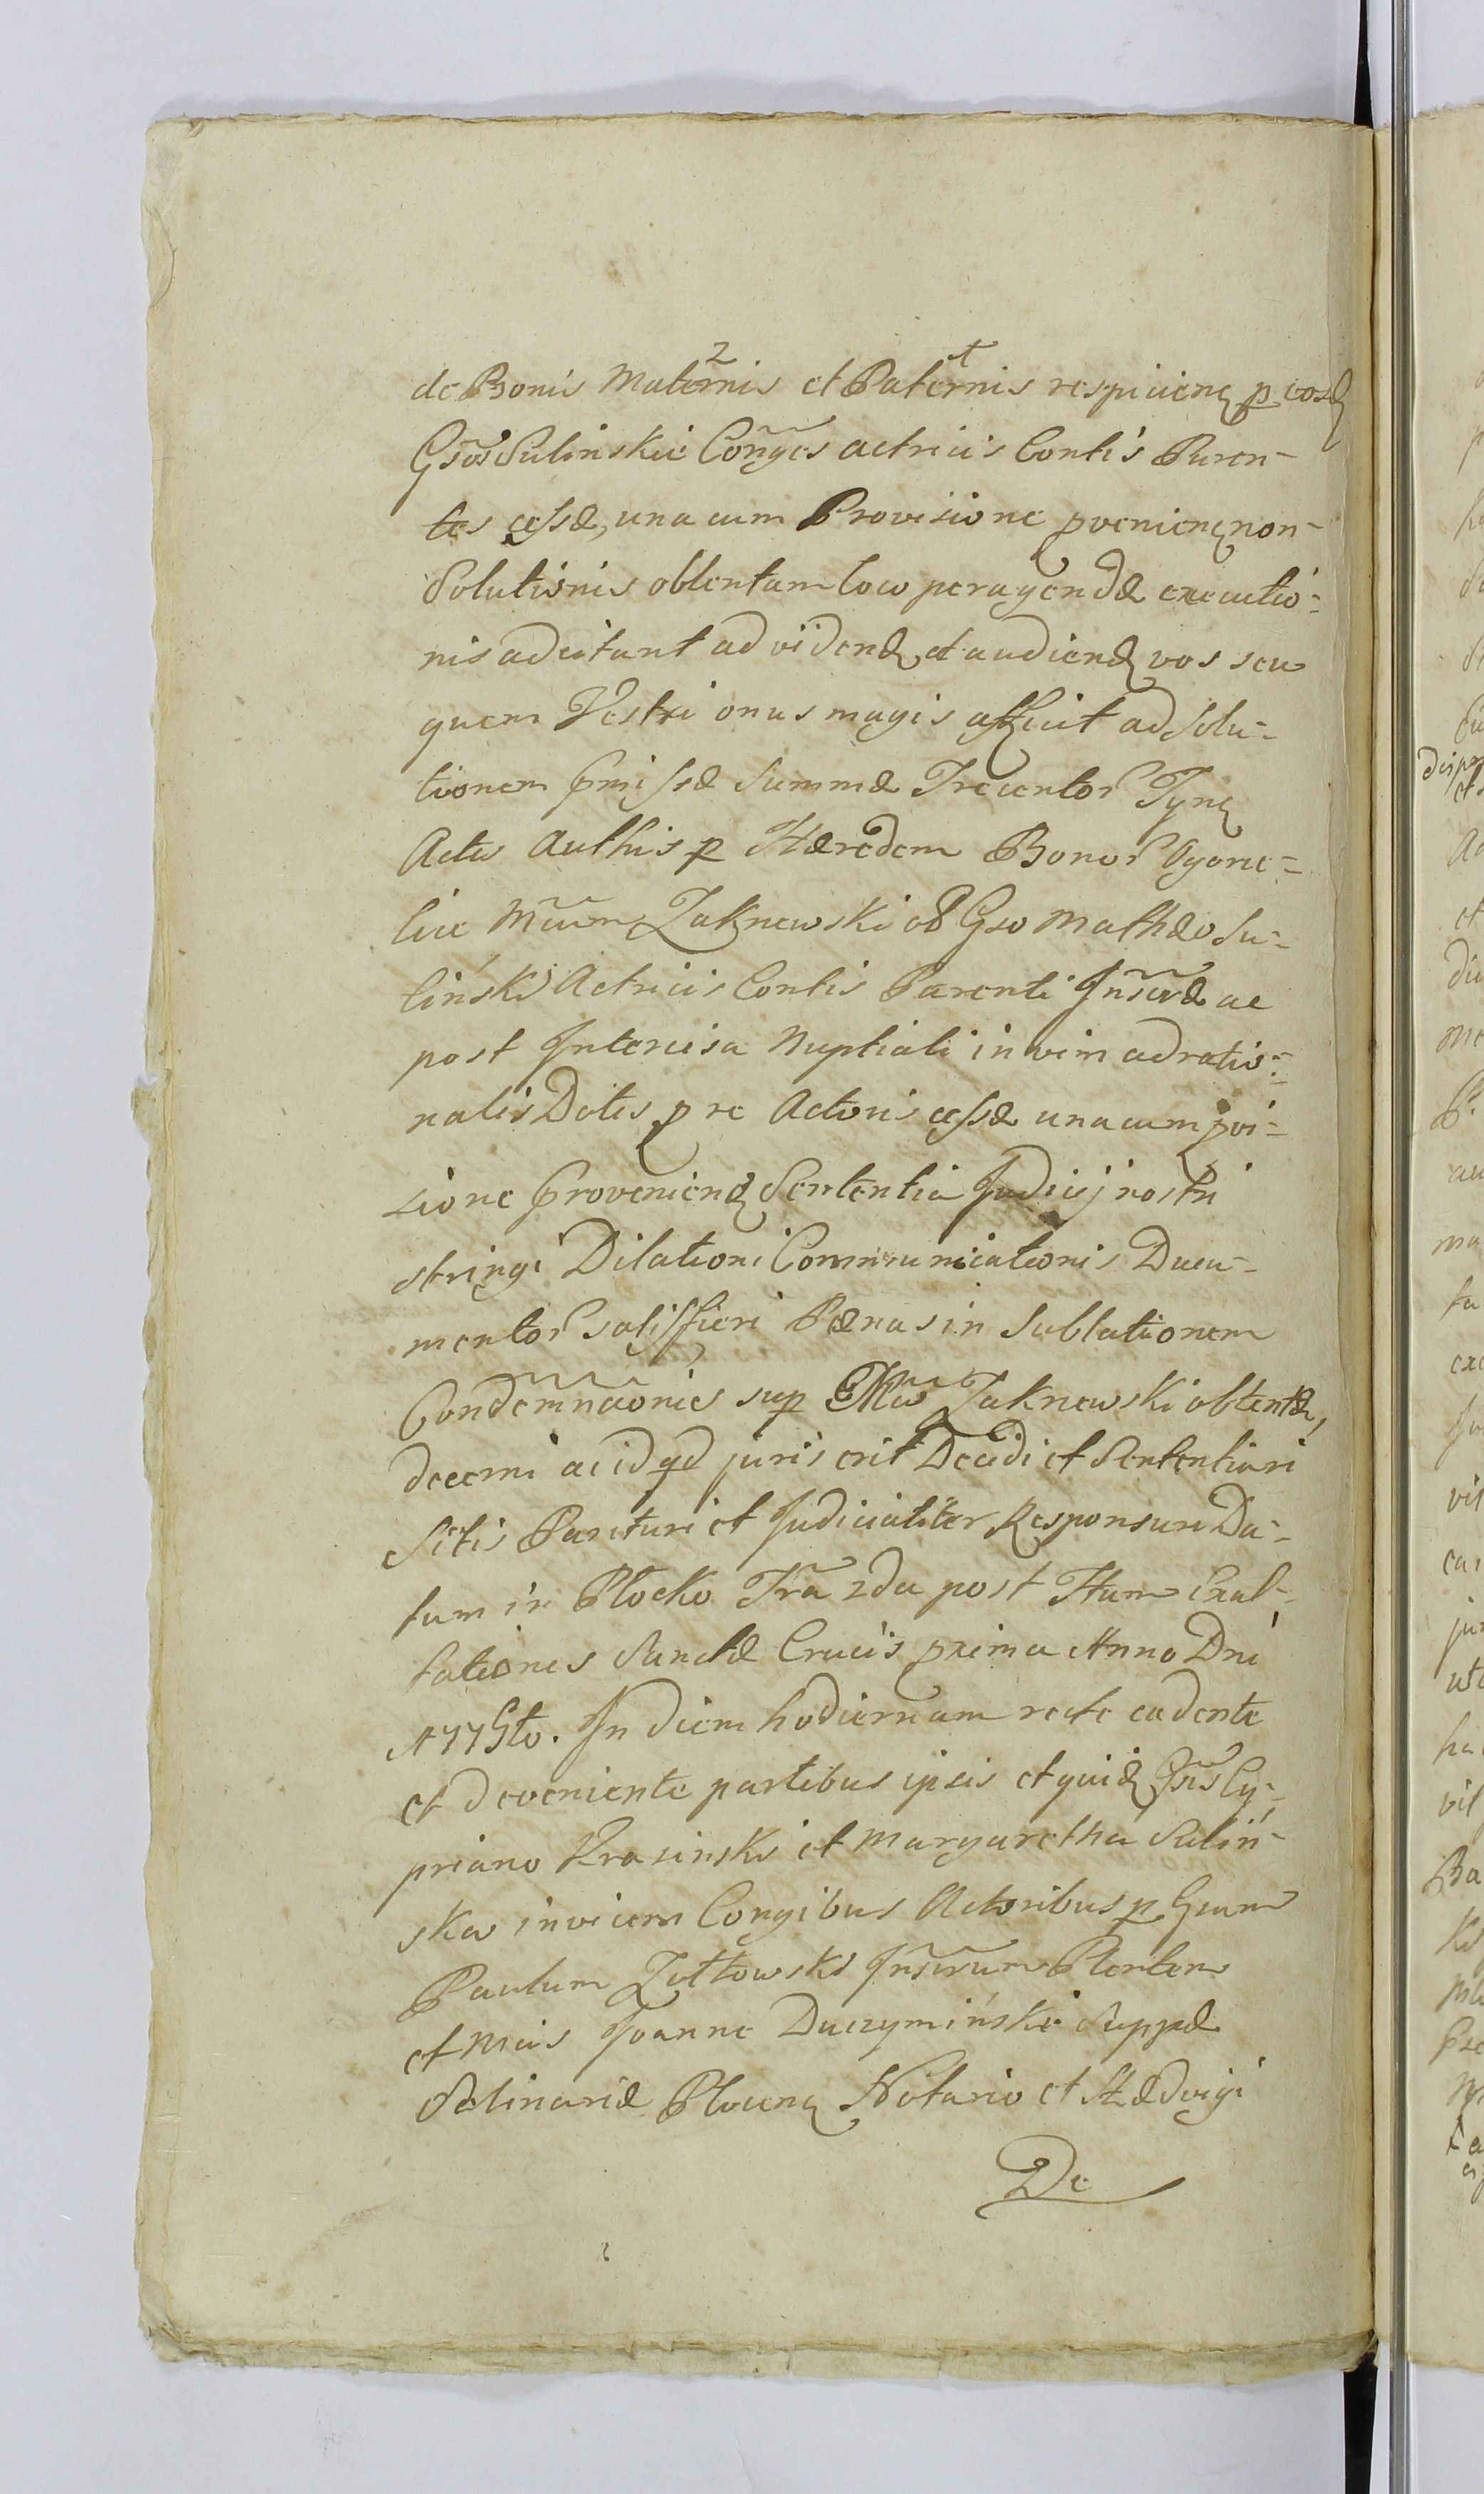 de Bonis Maternis et Paternis respicien p eosd
Gsōs Sulinskie Cōnges actricis Contis Paren-
tes cessæ, una cum Provisione pvenien non-
Solutionis obtentam loco peragendæ executio-
nis adcitant ad videnđ et audienđ vos seu
quem Vestri onus magis afficit ad Solu-
tionem pmissæ Summæ Trecentor Tyn
Actu Authis p Hæredem Bonor Ogone-
lice Mcum Zaknewski ob Gso Mathæo Su-
liński Actricis Contis Parenti Inscræ ac
post Intercisa Nuptiali in vim adratio-
nalis Dotis p re Actoris cessæ una cum pvi-
sione provenienđ Sententia Judicij nostri
stringi Dilationi Communicationis Docu-
mentor satisfieri Pænas in Sublationem
Condemnāonies sup GMco Zaknewski obtentæ,
decerni ac id qd juris erit Decidi et Sententiari
Sitis Parituri et Judicialiter Responsuri Da-
tum in Płocko Fra 2da post Ftum Exal-
tationes Sanctæ Crucis pxima Anno Dni
177Gto. In diem hodiernam recte cadente
et deveniente partibus ipsis et quiđ Gsis Cy-
priano Krasinski et Margaretha Suliń-
ska invicem Congibus Actoribus p Gsum
Paulum Zółtowski Inscrum Plenten
et Mcis Joanne Duczymiński Suppæ
Salinariæ Plocen Notario et Hædvigi
De